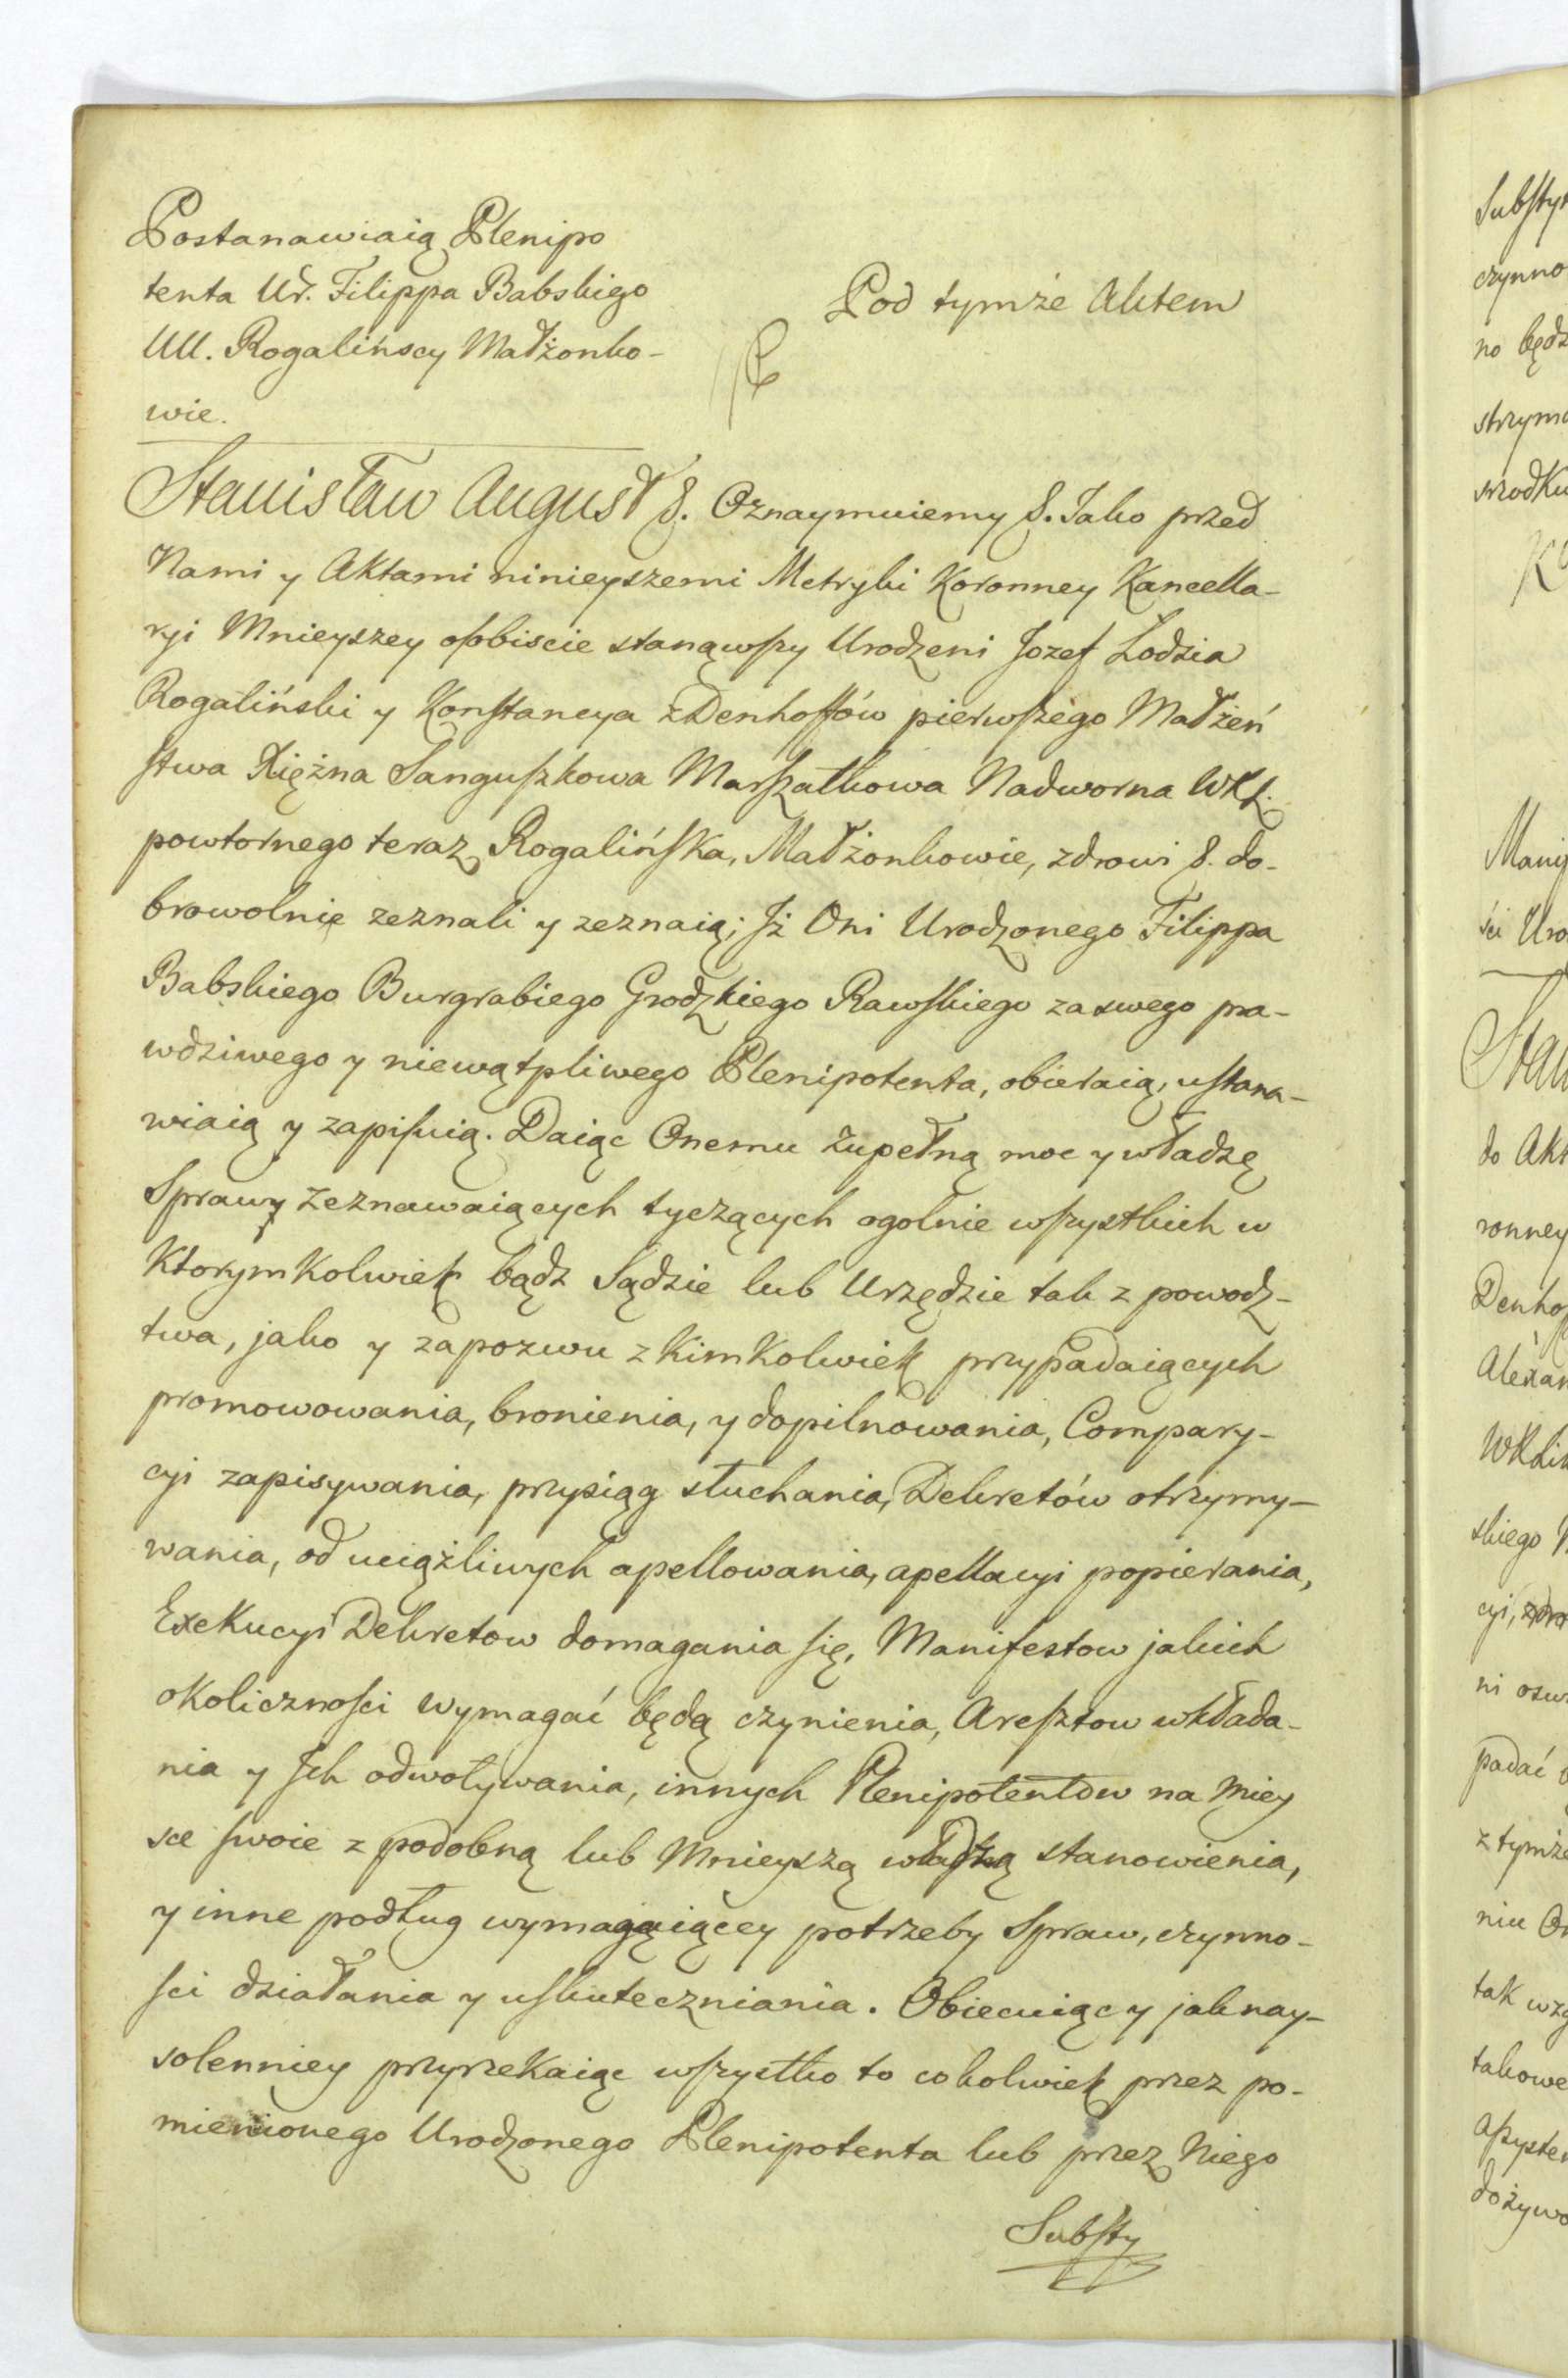 Postanawiaią Plenipo
tenta Ur. Filippa Babskigo
UU. Rogalińscy Małżonko-
wie.
Pod tymże Aktem
Stanisław August &. Oznaymuiemy &. Jako przed
Nami y Aktami ninieyszemi Metryki Koronney Kancella-
ryi Mnieyszey osobiscie stanąwszy Urodzeni Jozef Lodzia
Rogaliński y Konstancya z Denhoffów pierwszego Małżeń
stwa Xiężna Sanguszkowa Marszałkowa Nadworna WXL.
powtornego teraz Rogalińska, Małżonkowie, zdrowi &. do-
browolnie zeznali y zeznaią; Jż Oni Urodzonego Filippa
Babskiego Burgrabiego Grodzkiego Rawskiego za swego pra-
wdziwego y niewątpliwego Plenipotenta, obieraią, ustana-
wiaią y zapisuią. Daiąc Onemu zupełną moc y władzę
Sprawy zeznawaiących tyczących ogolnie wszystkich w
Ktorymkolwiek bądz Sądzie lub Urzędzie tak z powodz-
twa, jako y zapozwu z kimkolwiek przypadaiących
promowowania, bronienia, y dopilnowania, Compary-
cyi zapisywania, przysiąg słuchania, Dekretów otrzymy-
wania, od uciążliwych apellowania, apellacyi popierania,
Exekucyi Dekretow domagania się, Manifestow jakich
okoliczności wymagać będą czynienia, Aresztow wkłada-
nia y Jch odwoływania, innych Plenipotentow na miey
sce swoie z podobną lub Mnieyszą władzą stanowienia,
y inne podług wymagaiącey potrzeby Spraw, czynno-
sci działania y uskuteczniania. Obiecuiąc y jaknay-
solenniey przyrzekaiąc wszystko to cokolwiek przez po-
mienionego Urodzonego Plenipotenta lub przez Niego
Substy
Substy
czynno
no będz
strzyma
srzodku
Manif
ści Uro
Stan
do Akt
ronney
Denhof
Alexan
WXLit
skiego
cyi, zdro
padać
z tymże
niu On
tak wzg
takowe
assysten
dożywo